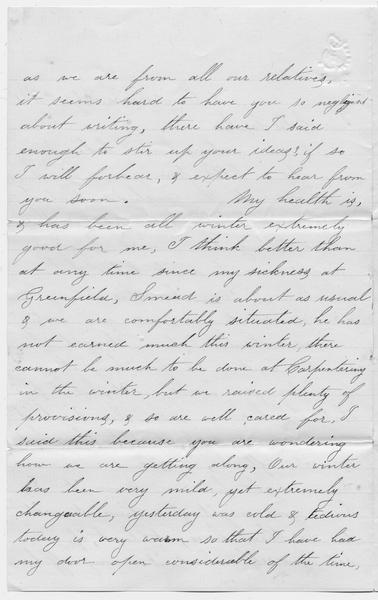 as we are from all our relatives,
it seems hard to have you so negligent
about writing, there have I said
enough to stir up your ideas? if so
I will forbear, & expect to hear from
you soon. My health is,
& has been all winter extremely
good for me, I think better than
at any time since my sickness at
Greenfield, Smead is about as usual
& we are comfortably situated, he has
not earned much this winter, there
cannot be much to be done at Carpentering
in the winter, but we raised plenty of
provisions, & so are well cared for, I
said this because you are wondering
how we are getting along, Our winter
has been very mild, yet extremely
changeable, yesterday was cold & tedious
today is very warm so that I have had
my door open considerable of the time,